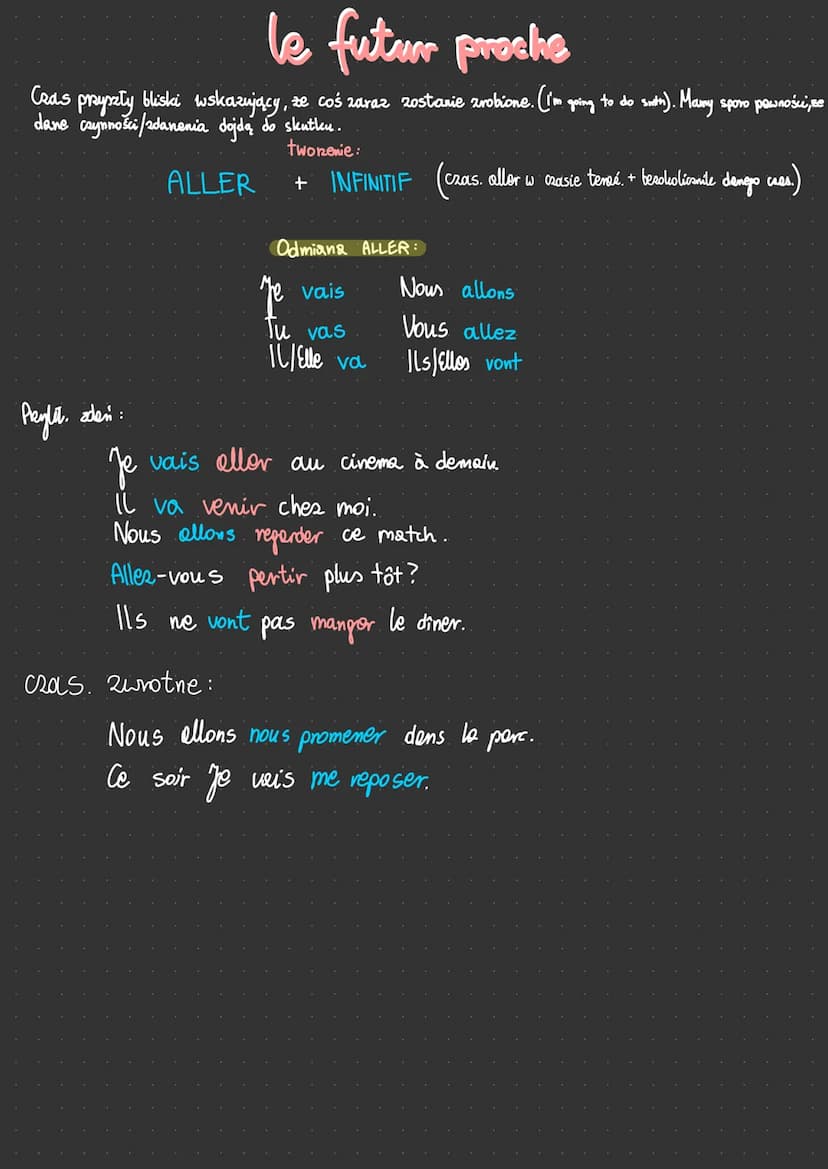 le futur proche
Czas przyszły bliski wskazujący, że coś zaraz zostanie zrobione. (I'm going to do smth). Mamy sporo pewności, że
dane czynności/zdarzenia dojdą do skutku.
tworzenie:
ALLER + INFINITIF (czas. aller w czasie teraź. + bezokolicznik danego czas.)
Odmiana ALLER:
Je vais Nous allons
Tu vas Vous allez
Il/Elle va Ils/Elles vont
Przykł. zdań:
Je vais aller au cinema à demain
Il va venir chez moi.
Nous allons regarder ce match.
Allez-vous partir plus tôt?
Ils ne vont pas manger le dîner.
czas. zwrotne:
Nous allons nous promener dans le parc.
Ce soir je vais me reposer.